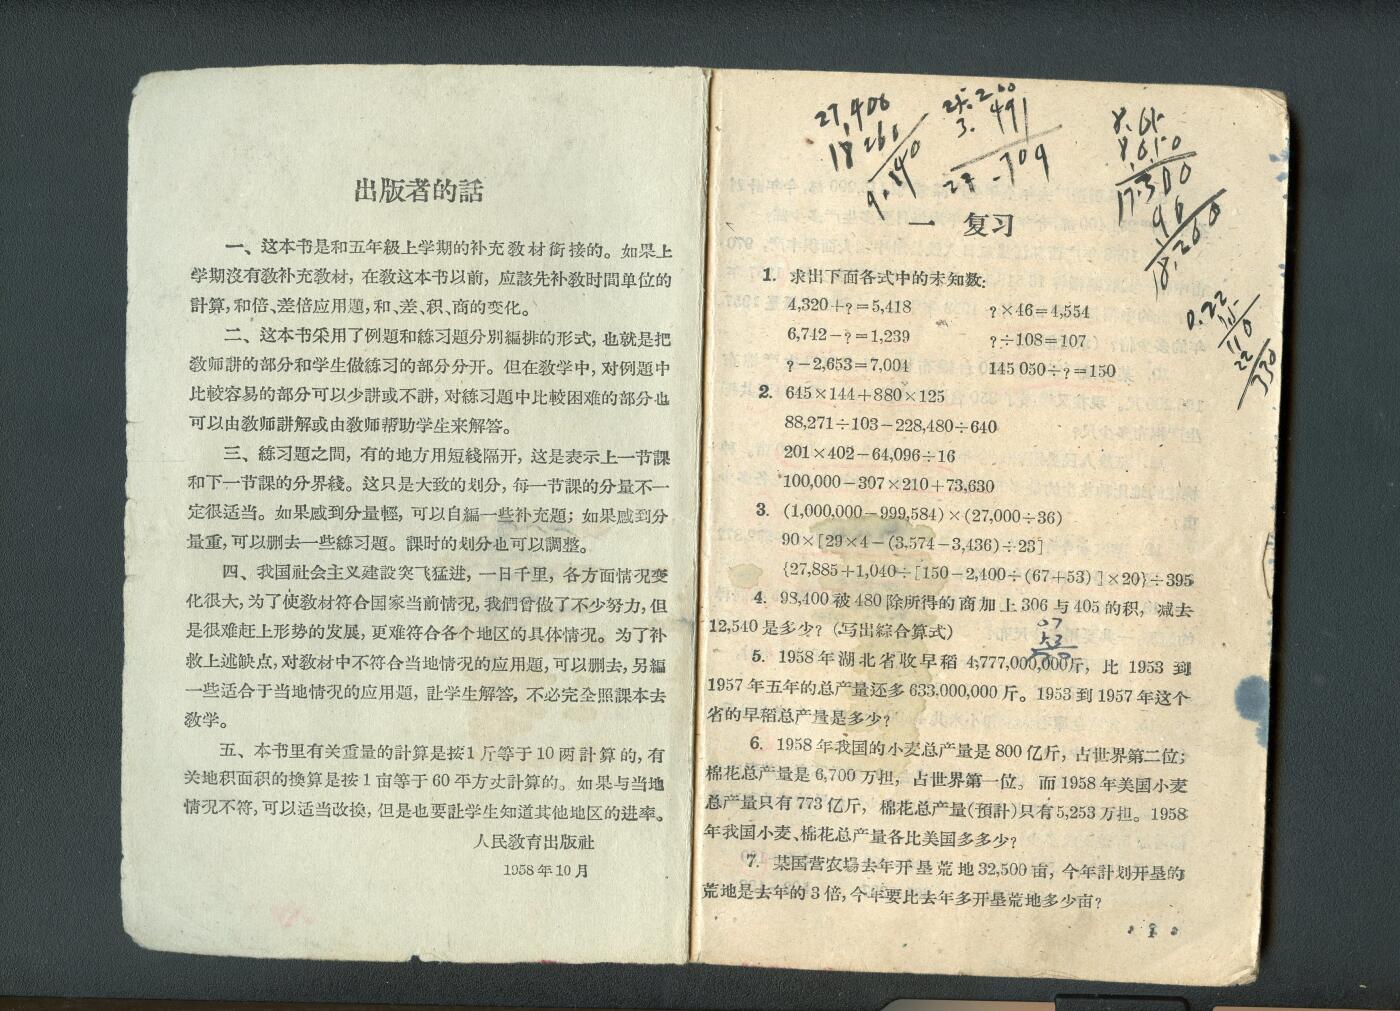 出版者的話
一、这本书是和五年級上学期的补充敎材銜接的。如果上
学期沒有敎补充敎材，在敎这本书以前，应該先补敎时間单位的
計算，和倍、差倍应用題，和、差、积、商的变化。
二、这本书采用了例題和練习題分別編排的形式，也就是把
敎师講的部分和学生做練习的部分分开。但在敎学中，对例題中
比較容易的部分可以少講或不講，对練习題中比較困难的部分也
可以由敎师講解或由敎师帮助学生来解答。
三、練习題之間，有的地方用短綫隔开，这是表示上一节課
和下一节課的分界綫。这只是大致的划分，每一节課的分量不一
定很适当。如果感到分量輕，可以自編一些补充題；如果感到分
量重，可以删去一些練习題。課时的划分也可以調整。
四、我国社会主义建設突飞猛进，一日千里，各方面情况变
化很大，为了使敎材符合国家当前情况，我們曾做了不少努力，但
是很难赶上形势的发展，更难符合各个地区的具体情况。为了补
救上述缺点，对敎材中不符合当地情况的应用題，可以删去，另編
一些适合于当地情况的应用題，让学生解答，不必完全照課本去
敎学。
五、本书里有关重量的計算是按1斤等于10两計算的，有
关地积面积的換算是按1亩等于60平方丈計算的。如果与当地
情况不符，可以适当改換，但是也要让学生知道其他地区的进率。
人民敎育出版社
1958年10月
27,406
18261
9.140
3.491
8.65
8.650
17.300
96
18.260
0.22
15
110
22
330
一 复习
1. 求出下面各式中的未知数：
4,320＋?＝5,418 ?×46＝4,554
6,742－?＝1,239 ?÷108＝107
?－2,653＝7,004 145 050÷?＝150
2. 645×144＋880×125
88,271÷103－228,480÷640
201×402－64,096÷16
100,000－397×210＋73,630
3. (1,000,000－999,584)×(27,000÷36)
90×[29×4－(3,574－3,436)÷23]
{27,885＋1,040÷[150－2,400÷(67＋53)]×20}÷395
4. 98,400被480除所得的商加上306与405的积，减去
12,540是多少？(写出綜合算式)
5. 1958年湖北省收早稻4,777,000,000斤，比1953到
1957年五年的总产量还多633,000,000斤。1953到1957年这个
省的早稻总产量是多少？
6. 1958年我国的小麦总产量是800亿斤，占世界第二位；
棉花总产量是6,700万担，占世界第一位。而1958年美国小麦
总产量只有773亿斤，棉花总产量(預計)只有5,253万担。1958
年我国小麦、棉花总产量各比美国多多少？
7. 某国营农場去年开垦荒地32,500亩，今年計划开垦的
荒地是去年的3倍，今年要比去年多开垦荒地多少亩？
• 1 •